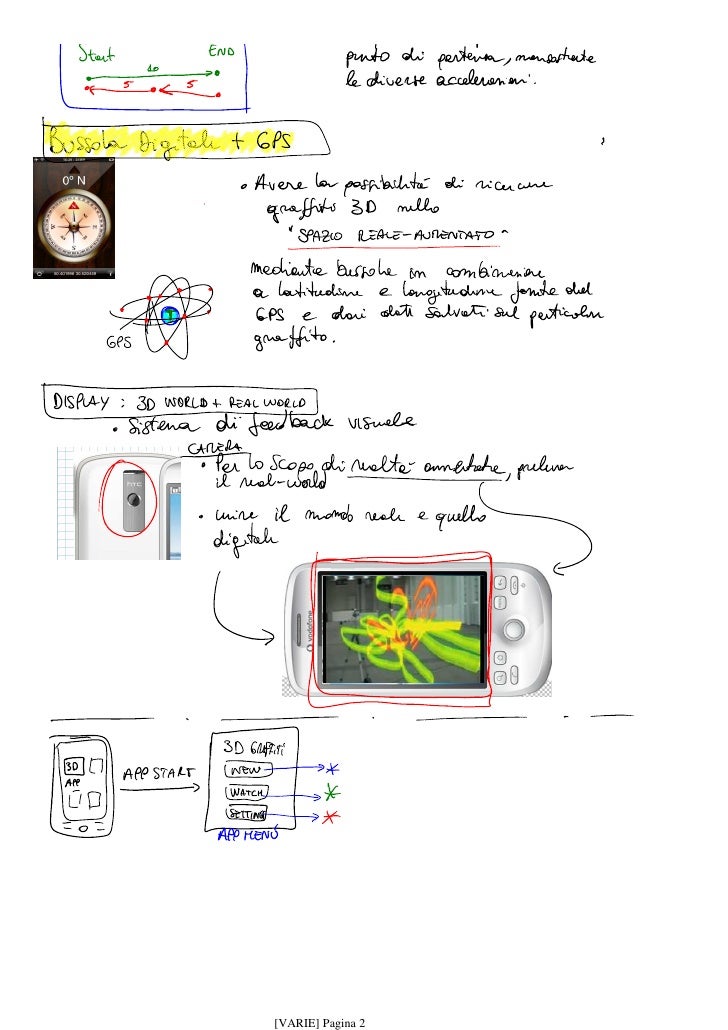 Start END
10
5 5
punto di partenza, nonostante
le diverse accelerazioni.
Bussola Digitale + GPS
0° N
• Avere la possibilità di ricercare
graffito 3D nello
"SPAZIO REALE-AUMENTATO"
mediante bussola in combinazione
a latitudine e longitudine fornite dal
GPS e dai dati salvati sul particolare
graffito.
GPS
DISPLAY : 3D WORLD + REAL WORLD
• Sistema di feedback visuale
CAMERA
• Per lo scopo di realtà aumentata, prelevare
il real-world
• unire il mondo reale e quello
digitale
htc
vodafone
3D
APP
APP START
3D GRAFFITI
NEW
WATCH
SETTING
APP MENÙ
[VARIE] Pagina 2